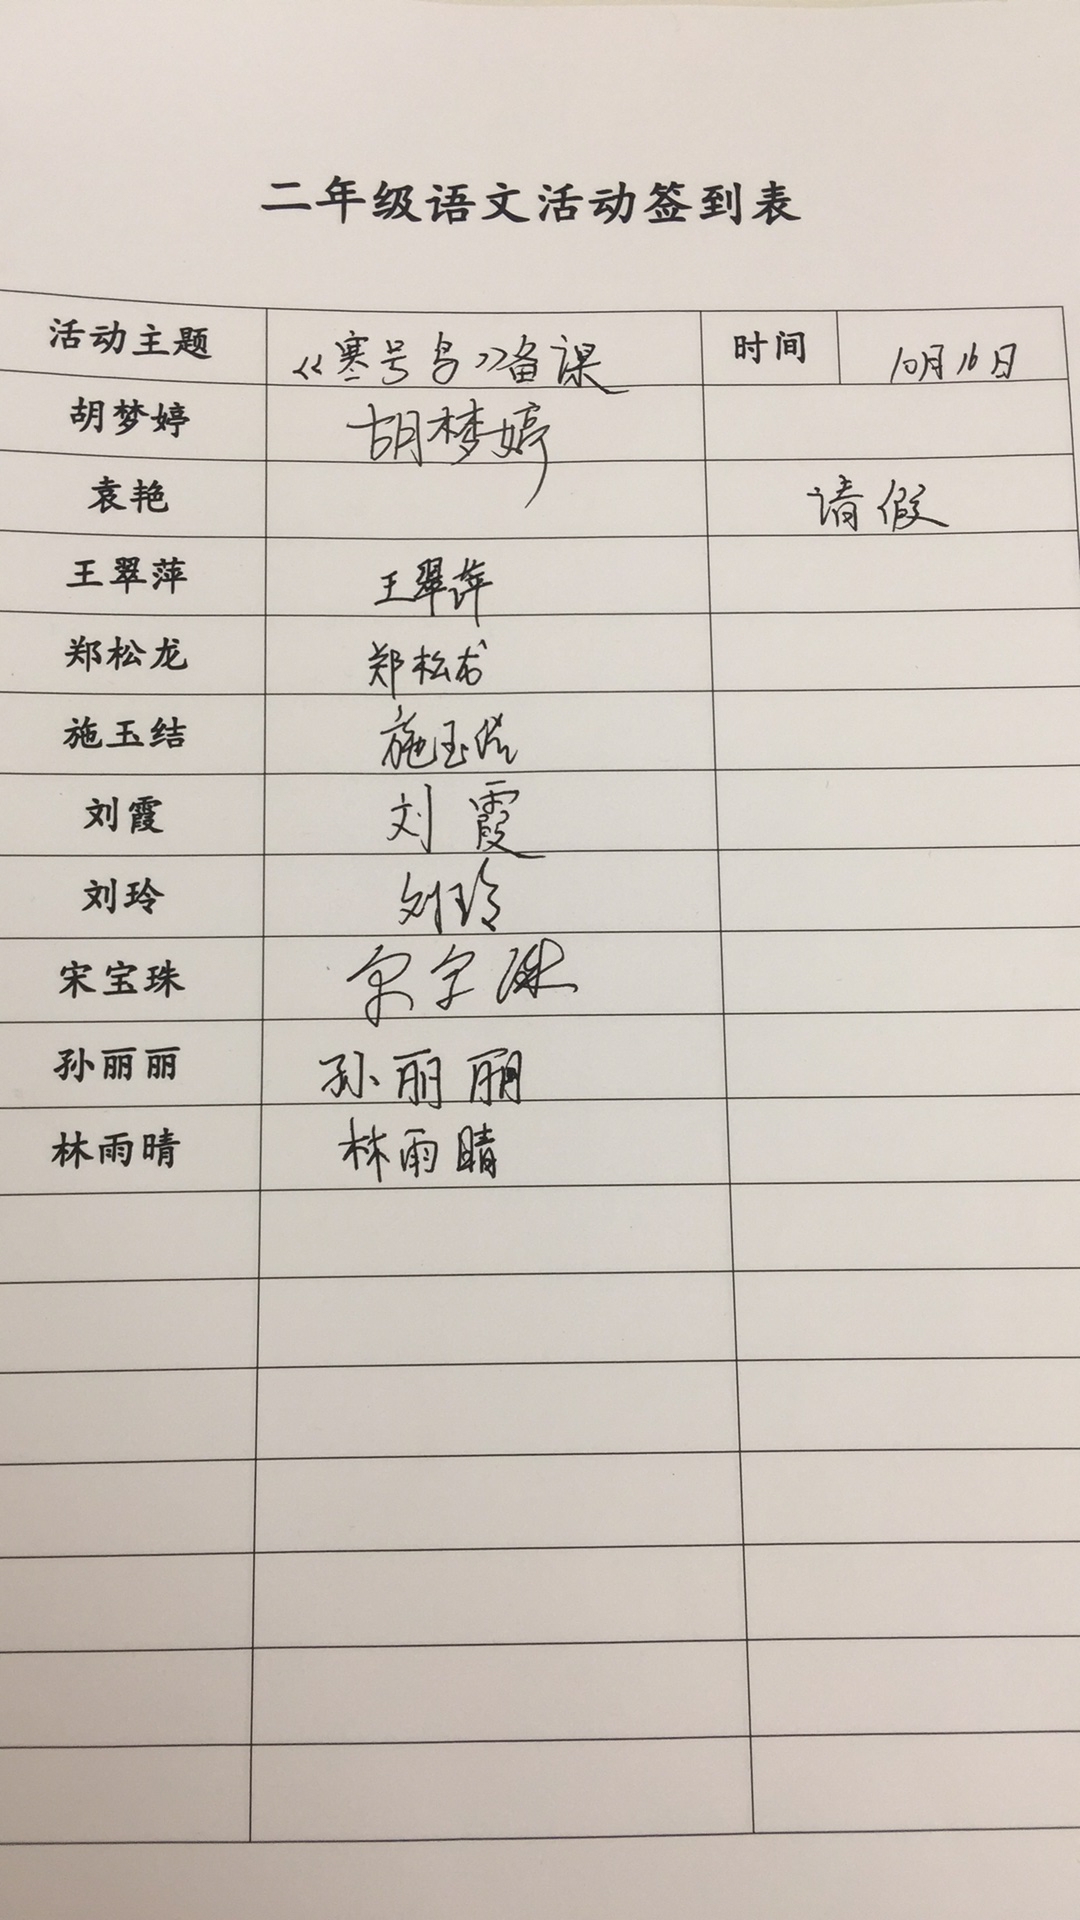 二年级语文活动签到表
活动主题 《寒号鸟》备课 时间 10月16日
胡梦婷 胡梦婷
袁艳 请假
王翠萍 王翠萍
郑松龙 郑松龙
施玉结 施玉结
刘霞 刘霞
刘玲 刘玲
宋宝珠 宋宝珠
孙丽丽 孙丽丽
林雨晴 林雨晴